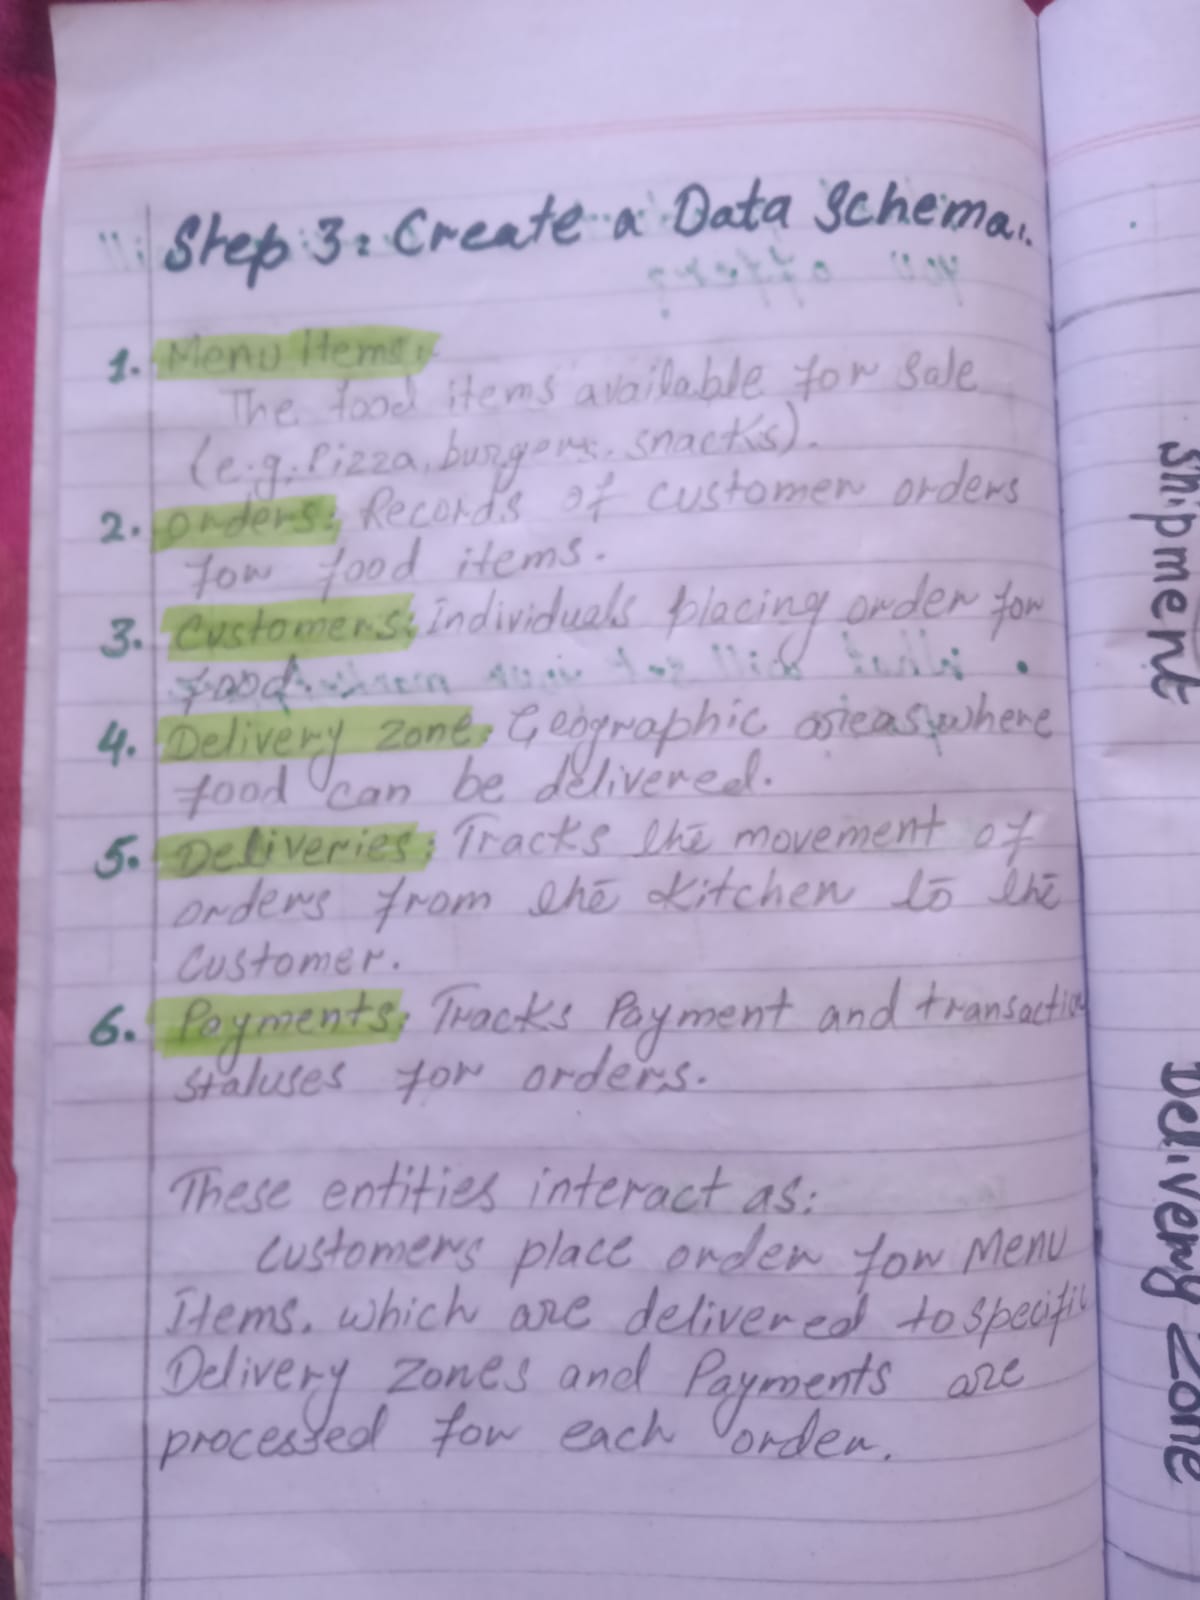 Step 3: Create a Data Schema.
1. Menu Items:
The food items available for sale
(e.g. Pizza, burgers, snacks).
2. Orders: Records of customer orders
for food items.
3. Customers: Individuals placing order for
food.
4. Delivery Zone: Geographic areas where
food can be delivered.
5. Deliveries: Tracks the movement of
orders from the Kitchen to the
Customer.
6. Payments: Tracks Payment and transactio
statuses for orders.
These entities interact as:
Customers place order for Menu
Items, which are delivered to specific
Delivery Zones and Payments are
processed for each order.
Shipment
Delivery Zone